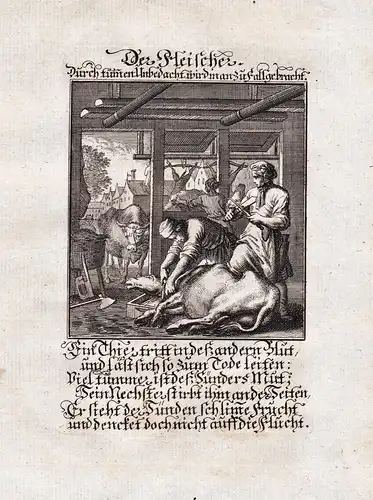 Der Fleischer.
Durch tum̄en Unbedacht, wird man zu Fall gebracht.
Ein Thier triff in deß andern Blut,
und läst sich so zum Tode leiten:
Viel tummer ist deß Sünders Mut;
Sein Nechster stirbt ihm an der Seiten,
Er sieht der Sünden schlime Frucht
und dencket doch nicht auff die Flucht.